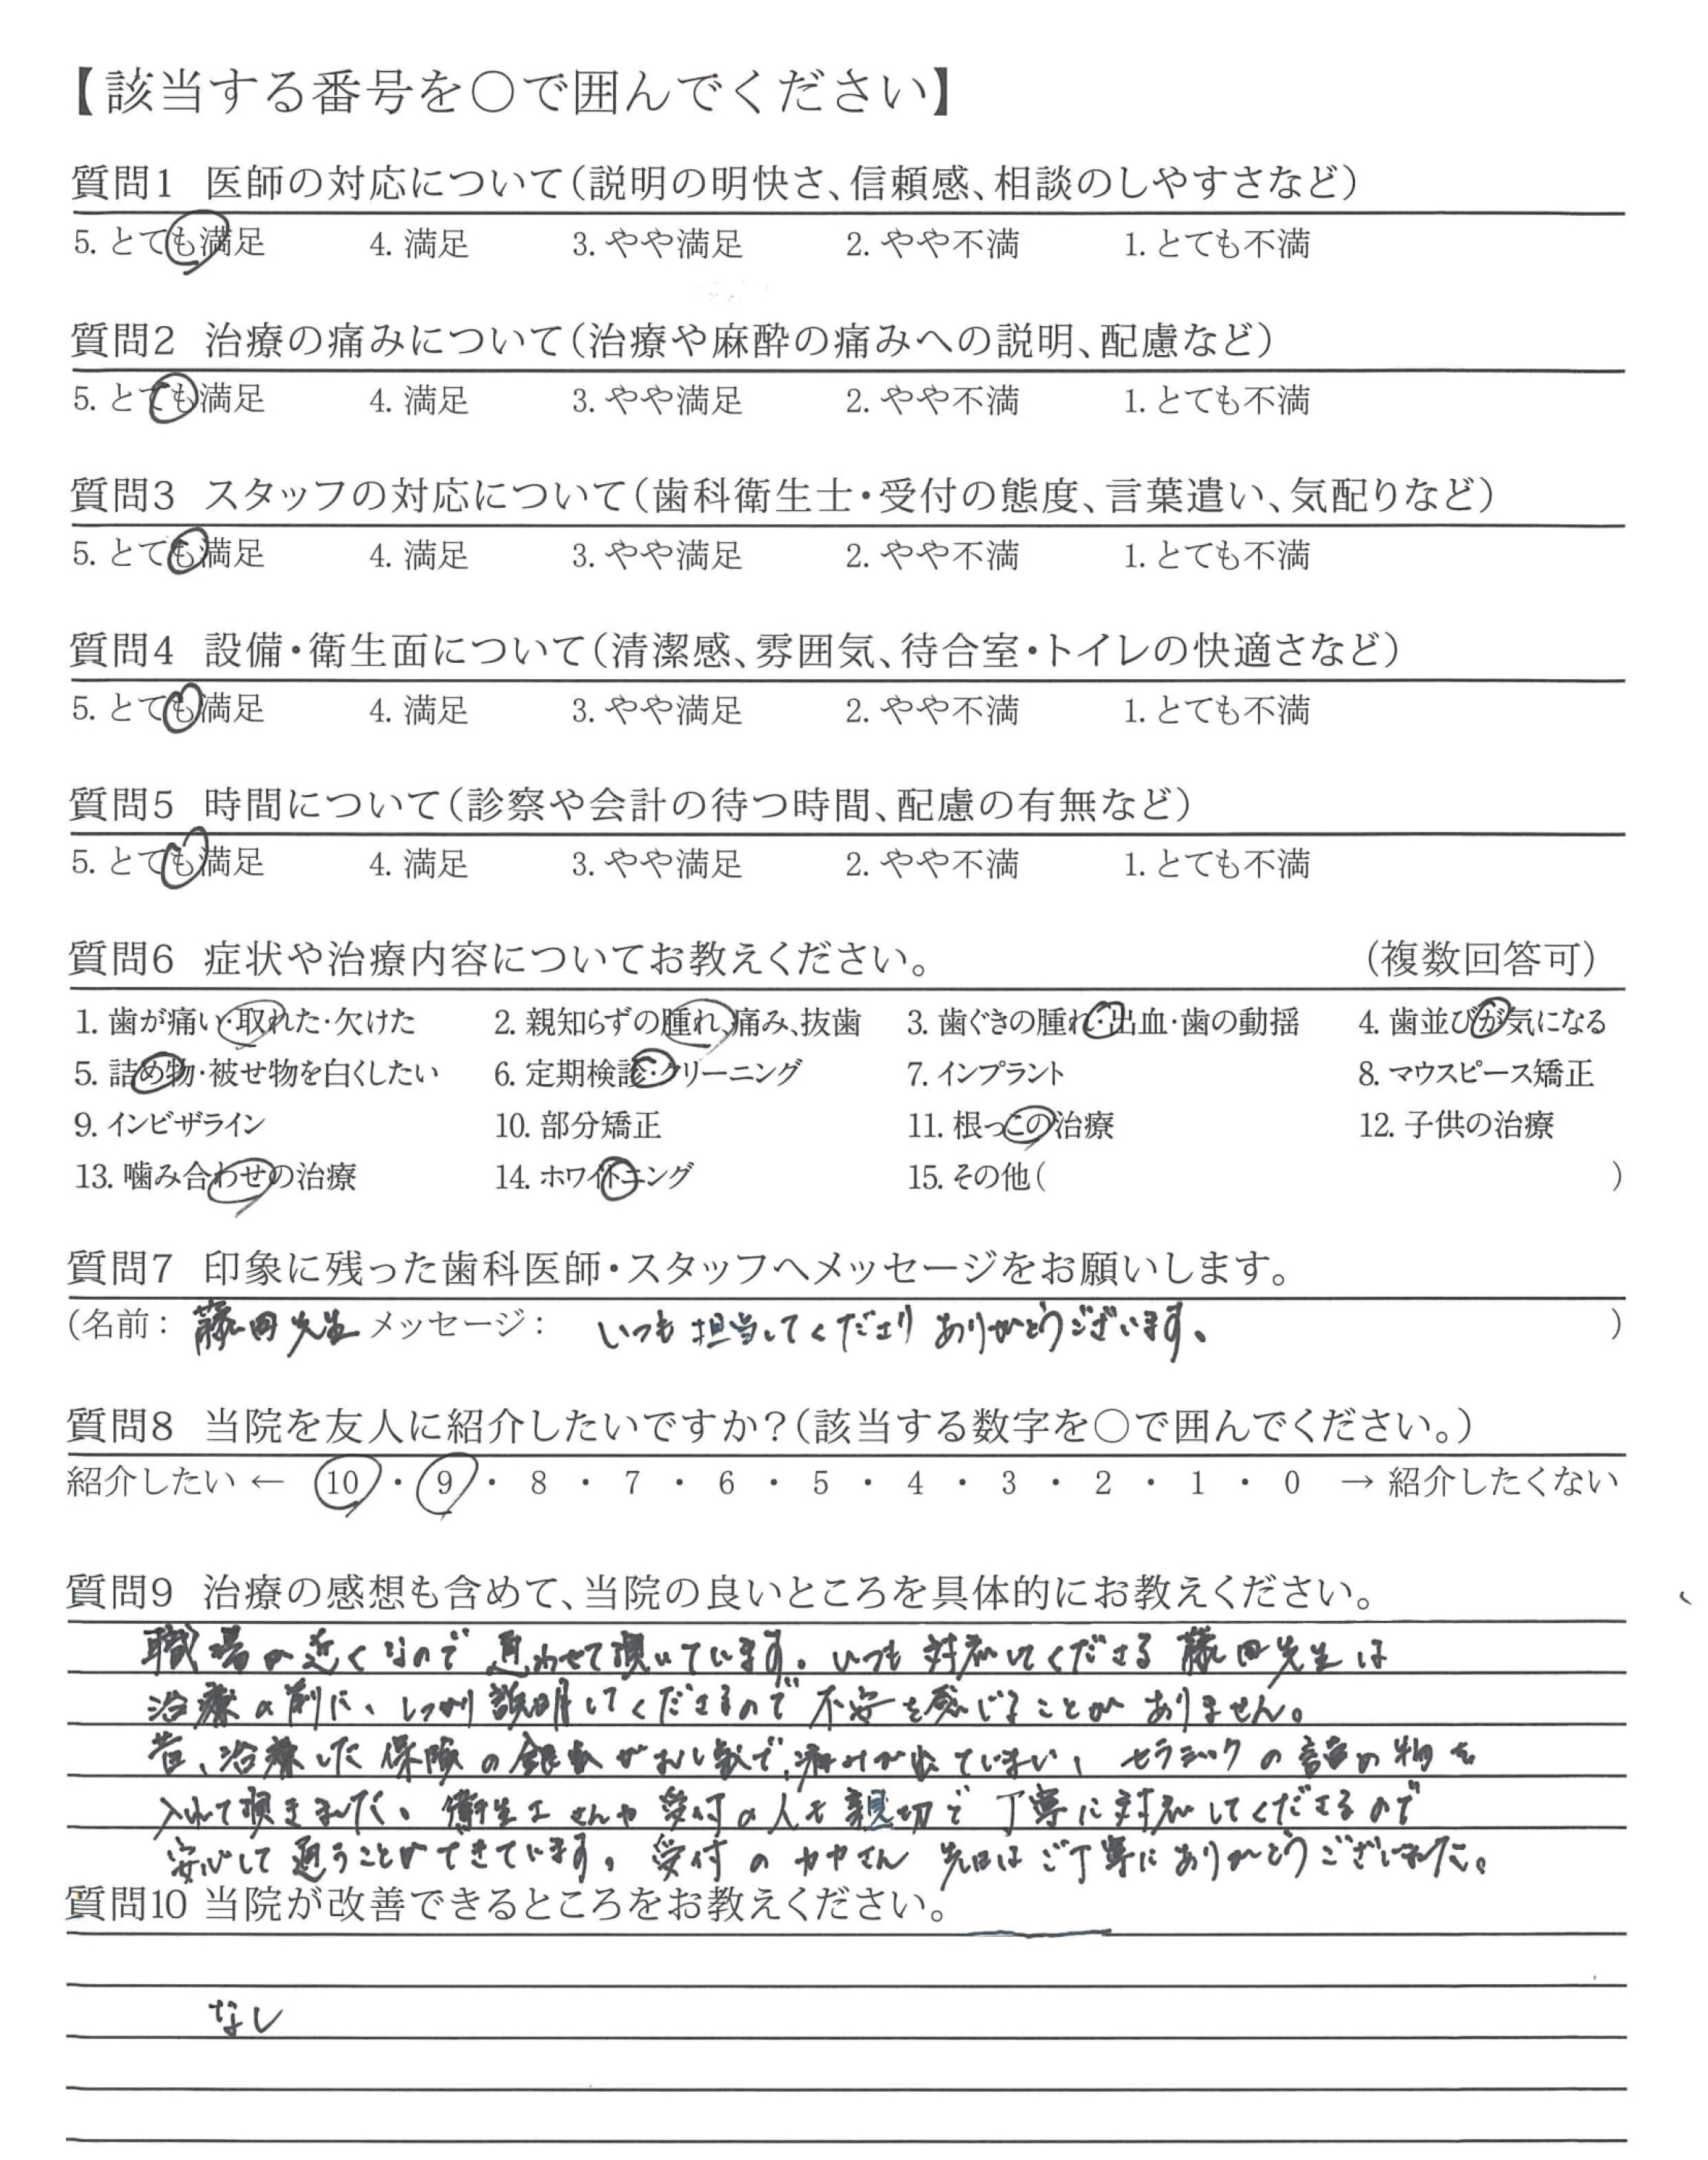 【該当する番号を○で囲んでください】
質問1 医師の対応について(説明の明快さ、信頼感、相談のしやすさなど)
5. とても満足 4. 満足 3. やや満足 2. やや不満 1. とても不満
質問2 治療の痛みについて(治療や麻酔の痛みへの説明、配慮など)
5. とても満足 4. 満足 3. やや満足 2. やや不満 1. とても不満
質問3 スタッフの対応について(歯科衛生士・受付の態度、言葉遣い、気配りなど)
5. とても満足 4. 満足 3. やや満足 2. やや不満 1. とても不満
質問4 設備・衛生面について(清潔感、雰囲気、待合室・トイレの快適さなど)
5. とても満足 4. 満足 3. やや満足 2. やや不満 1. とても不満
質問5 時間について(診察や会計の待つ時間、配慮の有無など)
5. とても満足 4. 満足 3. やや満足 2. やや不満 1. とても不満
質問6 症状や治療内容についてお教えください。 (複数回答可)
1. 歯が痛い・取れた・欠けた 2. 親知らずの腫れ、痛み、抜歯 3. 歯ぐきの腫れ・出血・歯の動揺 4. 歯並びが気になる
5. 詰め物・被せ物を白くしたい 6. 定期検診・クリーニング 7. インプラント 8. マウスピース矯正
9. インビザライン 10. 部分矯正 11. 根っこの治療 12. 子供の治療
13. 噛み合わせの治療 14. ホワイトニング 15. その他( )
質問7 印象に残った歯科医師・スタッフへメッセージをお願いします。
(名前: 藤田先生 メッセージ: いつも担当してくださり ありがとうございます。 )
質問8 当院を友人に紹介したいですか?(該当する数字を○で囲んでください。)
紹介したい ← 10 ・ 9 ・ 8 ・ 7 ・ 6 ・ 5 ・ 4 ・ 3 ・ 2 ・ 1 ・ 0 → 紹介したくない
質問9 治療の感想も含めて、当院の良いところを具体的にお教えください。
職場が近くなので 通わせて頂いています。いつも 対応してくださる 藤田先生は
治療の前に、しっかり説明してくださるので 不安を感じることが ありません。
昔、治療した 保険の銀歯が むし歯で、痛みが出てしまい、セラミックの詰め物を
入れて頂きました。衛生士さんや 受付の人も 親切で 丁寧に対応してくださるので
安心して 通うことができています。受付の カヤさん 先日はご丁寧に ありがとうございました。
質問10 当院が改善できるところをお教えください。
なし